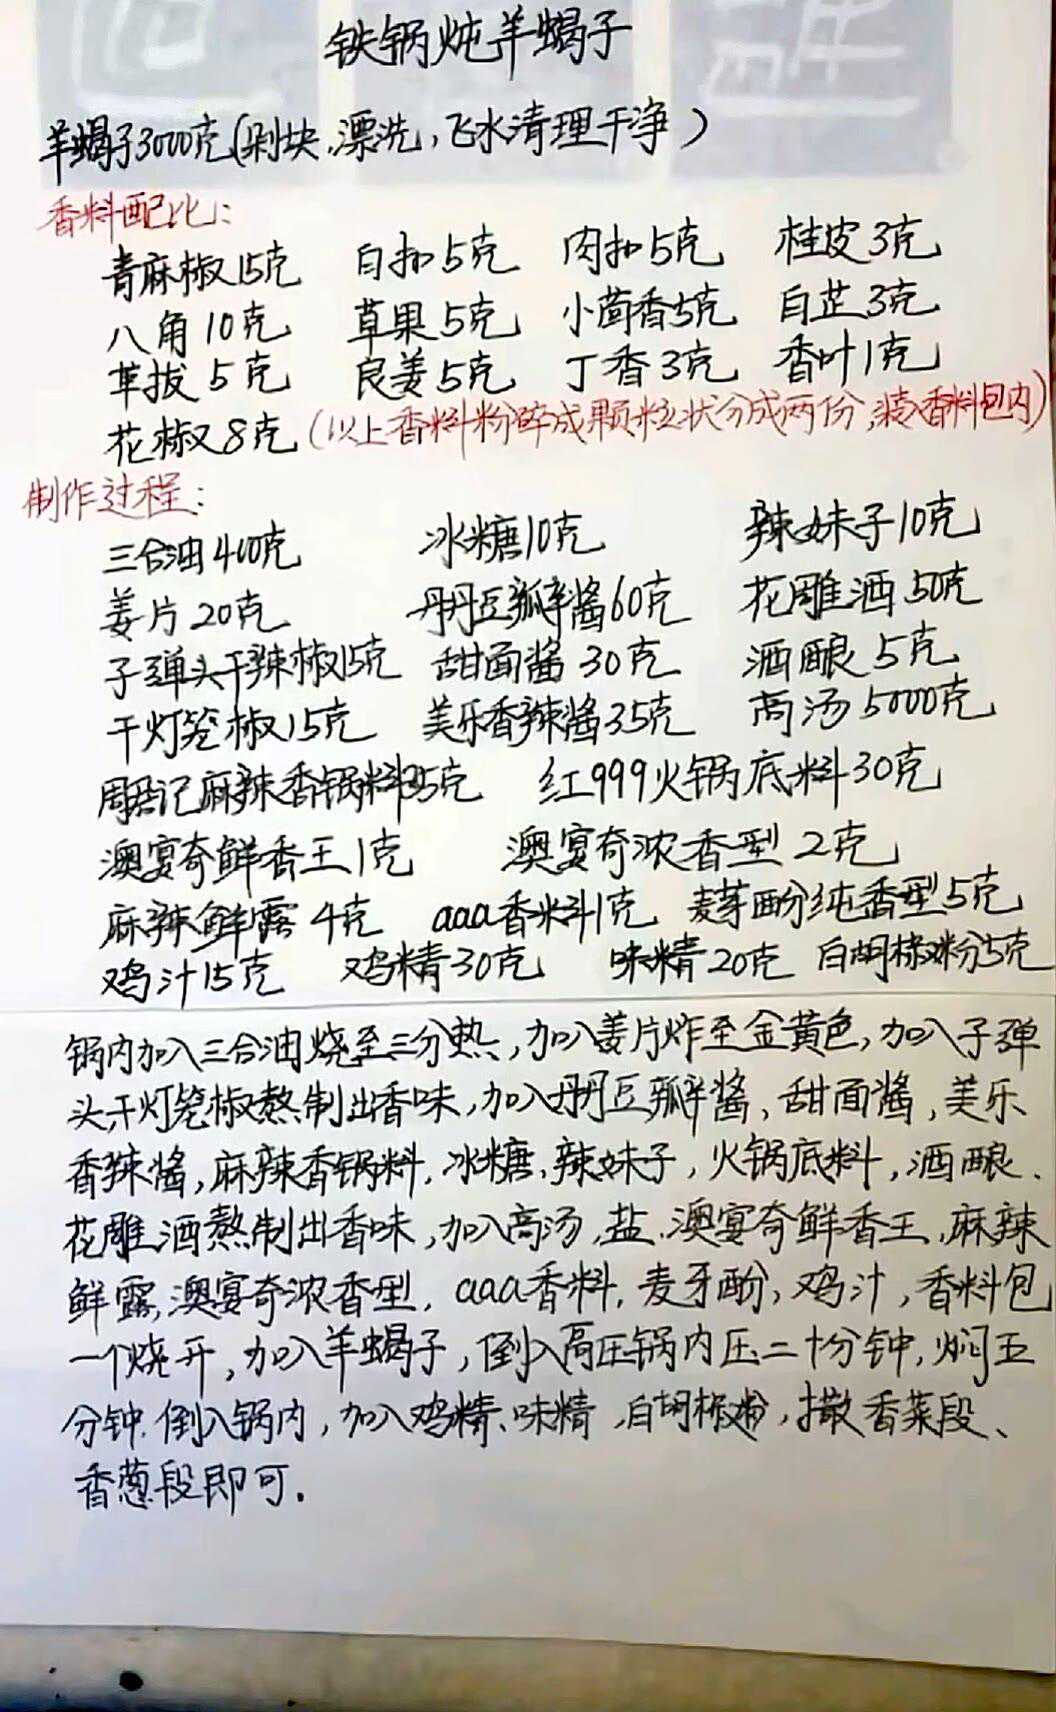 铁锅炖羊蝎子
羊蝎子3000克(剁块,漂洗,飞水清理干净)
香料配比:
青麻椒15克 白扣5克 肉扣5克 桂皮3克
八角10克 草果5克 小茴香5克 白芷3克
荜拔5克 良姜5克 丁香3克 香叶1克
花椒8克(以上香料粉碎成颗粒状分成两份,装入香料包内)
制作过程:
三合油400克 冰糖10克 辣妹子10克
姜片20克 丹丹豆瓣酱60克 花雕酒50克
子弹头干辣椒15克 甜面酱30克 酒酿5克
干灯笼椒15克 美乐香辣酱35克 高汤5000克
周君记麻辣香锅料35克 红999火锅底料30克
澳宴奇鲜香王1克 澳宴奇浓香型2克
麻辣鲜露4克 aaa香料1克 麦芽酚纯香型5克
鸡汁15克 鸡精30克 味精20克 白胡椒粉5克
锅内加入三合油烧至三分热,加入姜片炸至金黄色,加入子弹
头,干灯笼椒熬制出香味,加入丹丹豆瓣酱、甜面酱,美乐
香辣酱,麻辣香锅料,冰糖,辣妹子,火锅底料,酒酿、
花雕酒熬制出香味,加入高汤,盐,澳宴奇鲜香王,麻辣
鲜露,澳宴奇浓香型,aaa香料,麦牙酚,鸡汁,香料包
一个烧开,加入羊蝎子,倒入高压锅内压二十分钟,焖五
分钟.倒入锅内,加入鸡精、味精,白胡椒粉,撒香菜段、
香葱段即可.